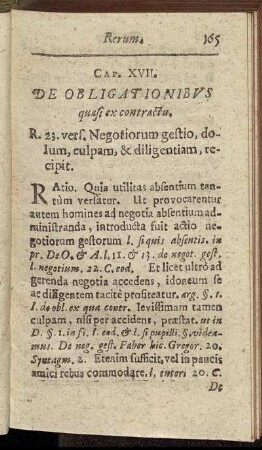 Rerum. 165
CAP. XVII.
DE OBLIGATIONIBVS
quasi ex contractu.
R. 23. vers. Negotiorum gestio, do-
lum, culpam, & diligentiam, re-
cipit.
RAtio. Quia utilitas absentium tan-
tùm versatur. Ut provocarentur
autem homines ad negotia absentium ad-
ministranda, introducta fuit actio ne-
gotiorum gestorum l. si quis absentis. in
pr. De O. & A. l. 11. & 13. de negot. gest.
l. negotium. 22. C. eod. Et licet ultrò ad
gerenda negotia accedens, idoneum se
ac diligentem tacitè profiteatur. arg. §. 1.
I. de obl. ex qua contr. levissimam tamen
culpam, nisi per accidens, præstat. ut in
D. §. 1. in fi. I. eod. & l. si pupilli. §. videa-
mus. De neg. gest. Faber hîc. Gregor. 20.
Syntagm. 2. Etenim sufficit, vel in paucis
amici rebus commodare. l. tutori 20. C.
De